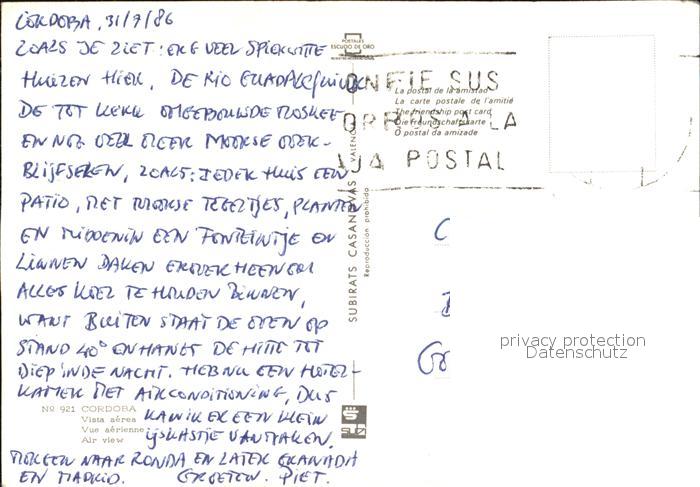 CÓRDOBA, 31/7/86
ZOALS JE ZIET: ERG VEEL SPIERWITTE
HUIZEN HIER, DE RIO GUADALQUIVIR
DE TOT KERK OMGEBOUWDE MOSKEE
EN NOG VEEL MEER MOORSE OVER-
BLIJFSELEN, ZOALS: IEDER HUIS EEN
PATIO, MET MOORSE TEGELTJES, PLANTEN
EN MIDDENIN EEN FONTEINTJE EN
LINNEN DAKEN EROVER HEEN OM
ALLES KOEL TE HOUDEN BINNEN,
WANT BUITEN STAAT DE OVEN OP
STAND 40° EN HANGT DE HITTE TOT
DIEP IN DE NACHT. HEB NU EEN HOTEL-
KAMER MET AIRCONDITIONING, DUS
KAN IK ER EEN KLEIN
IJSKASTJE VAN MAKEN.
MORGEN NAAR RONDA EN LATER GRANADA
EN MADRID. GROETEN. PIET.
Nº 921 CORDOBA
Vista aérea
Vue aérienne
Air view
POSTALES
ESCUDO DE ORO
SUBIRATS CASANOVAS VALENCIA
Reproducción prohibida
La postal de la amistad
La carte postale de l'amitié
The friendship post card
Die Freundschaftskarte
O postal da amizade
ONFIE SUS
ORROS A LA
AJA POSTAL
privacy protection
Datenschutz